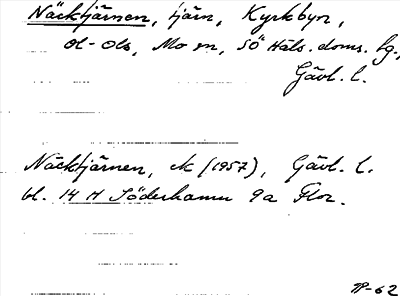 Näcktjärnen, tjärn, Kyrkbyn,
Ol-Ols, Mo sn, SÖ Häls. doms. lg.,
Gävl. l.
Näcktjärnen, ek (1957), Gävl. l.
bl. 14 H Söderhamn 9a Flor.
-62